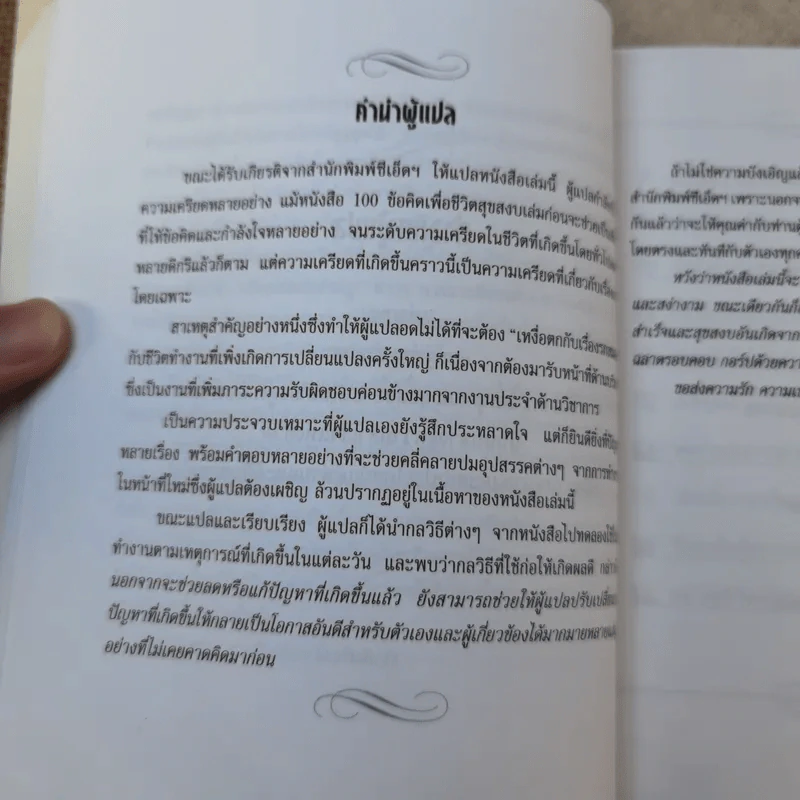 คำนำผู้แปล
ขณะได้รับเกียรติจากสำนักพิมพ์ซีเอ็ดฯ ให้แปลหนังสือเล่มนี้ ผู้แปลกำลัง
ความเครียดหลายอย่าง แม้หนังสือ 100 ข้อคิดเพื่อชีวิตสุขสงบเล่มก่อนจะช่วย
ที่ให้ข้อคิดและกำลังใจหลายอย่าง จนระดับความเครียดในชีวิตที่เกิดขึ้นโดยทั่วไป
หลายดีกรีแล้วก็ตาม แต่ความเครียดที่เกิดขึ้นคราวนี้เป็นความเครียดที่เกี่ยวกับ
โดยเฉพาะ
สาเหตุสำคัญอย่างหนึ่งซึ่งทำให้ผู้แปลอดไม่ได้ที่จะต้อง “เหงื่อตกกับเรื่อง
กับชีวิตทำงานที่เพิ่งเกิดการเปลี่ยนแปลงครั้งใหญ่ ก็เนื่องจากต้องมารับหน้าที่ด้าน
ซึ่งเป็นงานที่เพิ่มภาระความรับผิดชอบค่อนข้างมากจากงานประจำด้านวิชาการ
เป็นความประจวบเหมาะที่ผู้แปลเองยังรู้สึกประหลาดใจ แต่ก็ยินดียิ่งที่
หลายเรื่อง พร้อมคำตอบหลายอย่างที่จะช่วยคลี่คลายปมอุปสรรคต่างๆ จากการ
ในหน้าที่ใหม่ซึ่งผู้แปลต้องเผชิญ ล้วนปรากฏอยู่ในเนื้อหาของหนังสือเล่มนี้
ขณะแปลและเรียบเรียง ผู้แปลก็ได้นำกลวิธีต่างๆ จากหนังสือไปทดลองใช้
ทำงานตามเหตุการณ์ที่เกิดขึ้นในแต่ละวัน และพบว่ากลวิธีที่ใช้ก่อให้เกิดผลดี
นอกจากจะช่วยลดหรือแก้ปัญหาที่เกิดขึ้นแล้ว ยังสามารถช่วยให้ผู้แปลปรับเปลี่ยน
ปัญหาที่เกิดขึ้นให้กลายเป็นโอกาสอันดีสำหรับตัวเองและผู้เกี่ยวข้องได้มากมายหลาย
อย่างที่ไม่เคยคาดคิดมาก่อน
ถ้าไม่ใช่ความบังเอิญ
สำนักพิมพ์ซีเอ็ดฯ เพราะนอกจาก
กันแล้วว่าจะให้คุณค่ากับท่าน
โดยตรงและทันทีกับตัวเองทุก
หวังว่าหนังสือเล่มนี้จะ
และสง่างาม ขณะเดียวกันก็
สำเร็จและสุขสงบอันเกิดจาก
ฉลาดรอบคอบ กอร์ปด้วยความ
ขอส่งความรัก